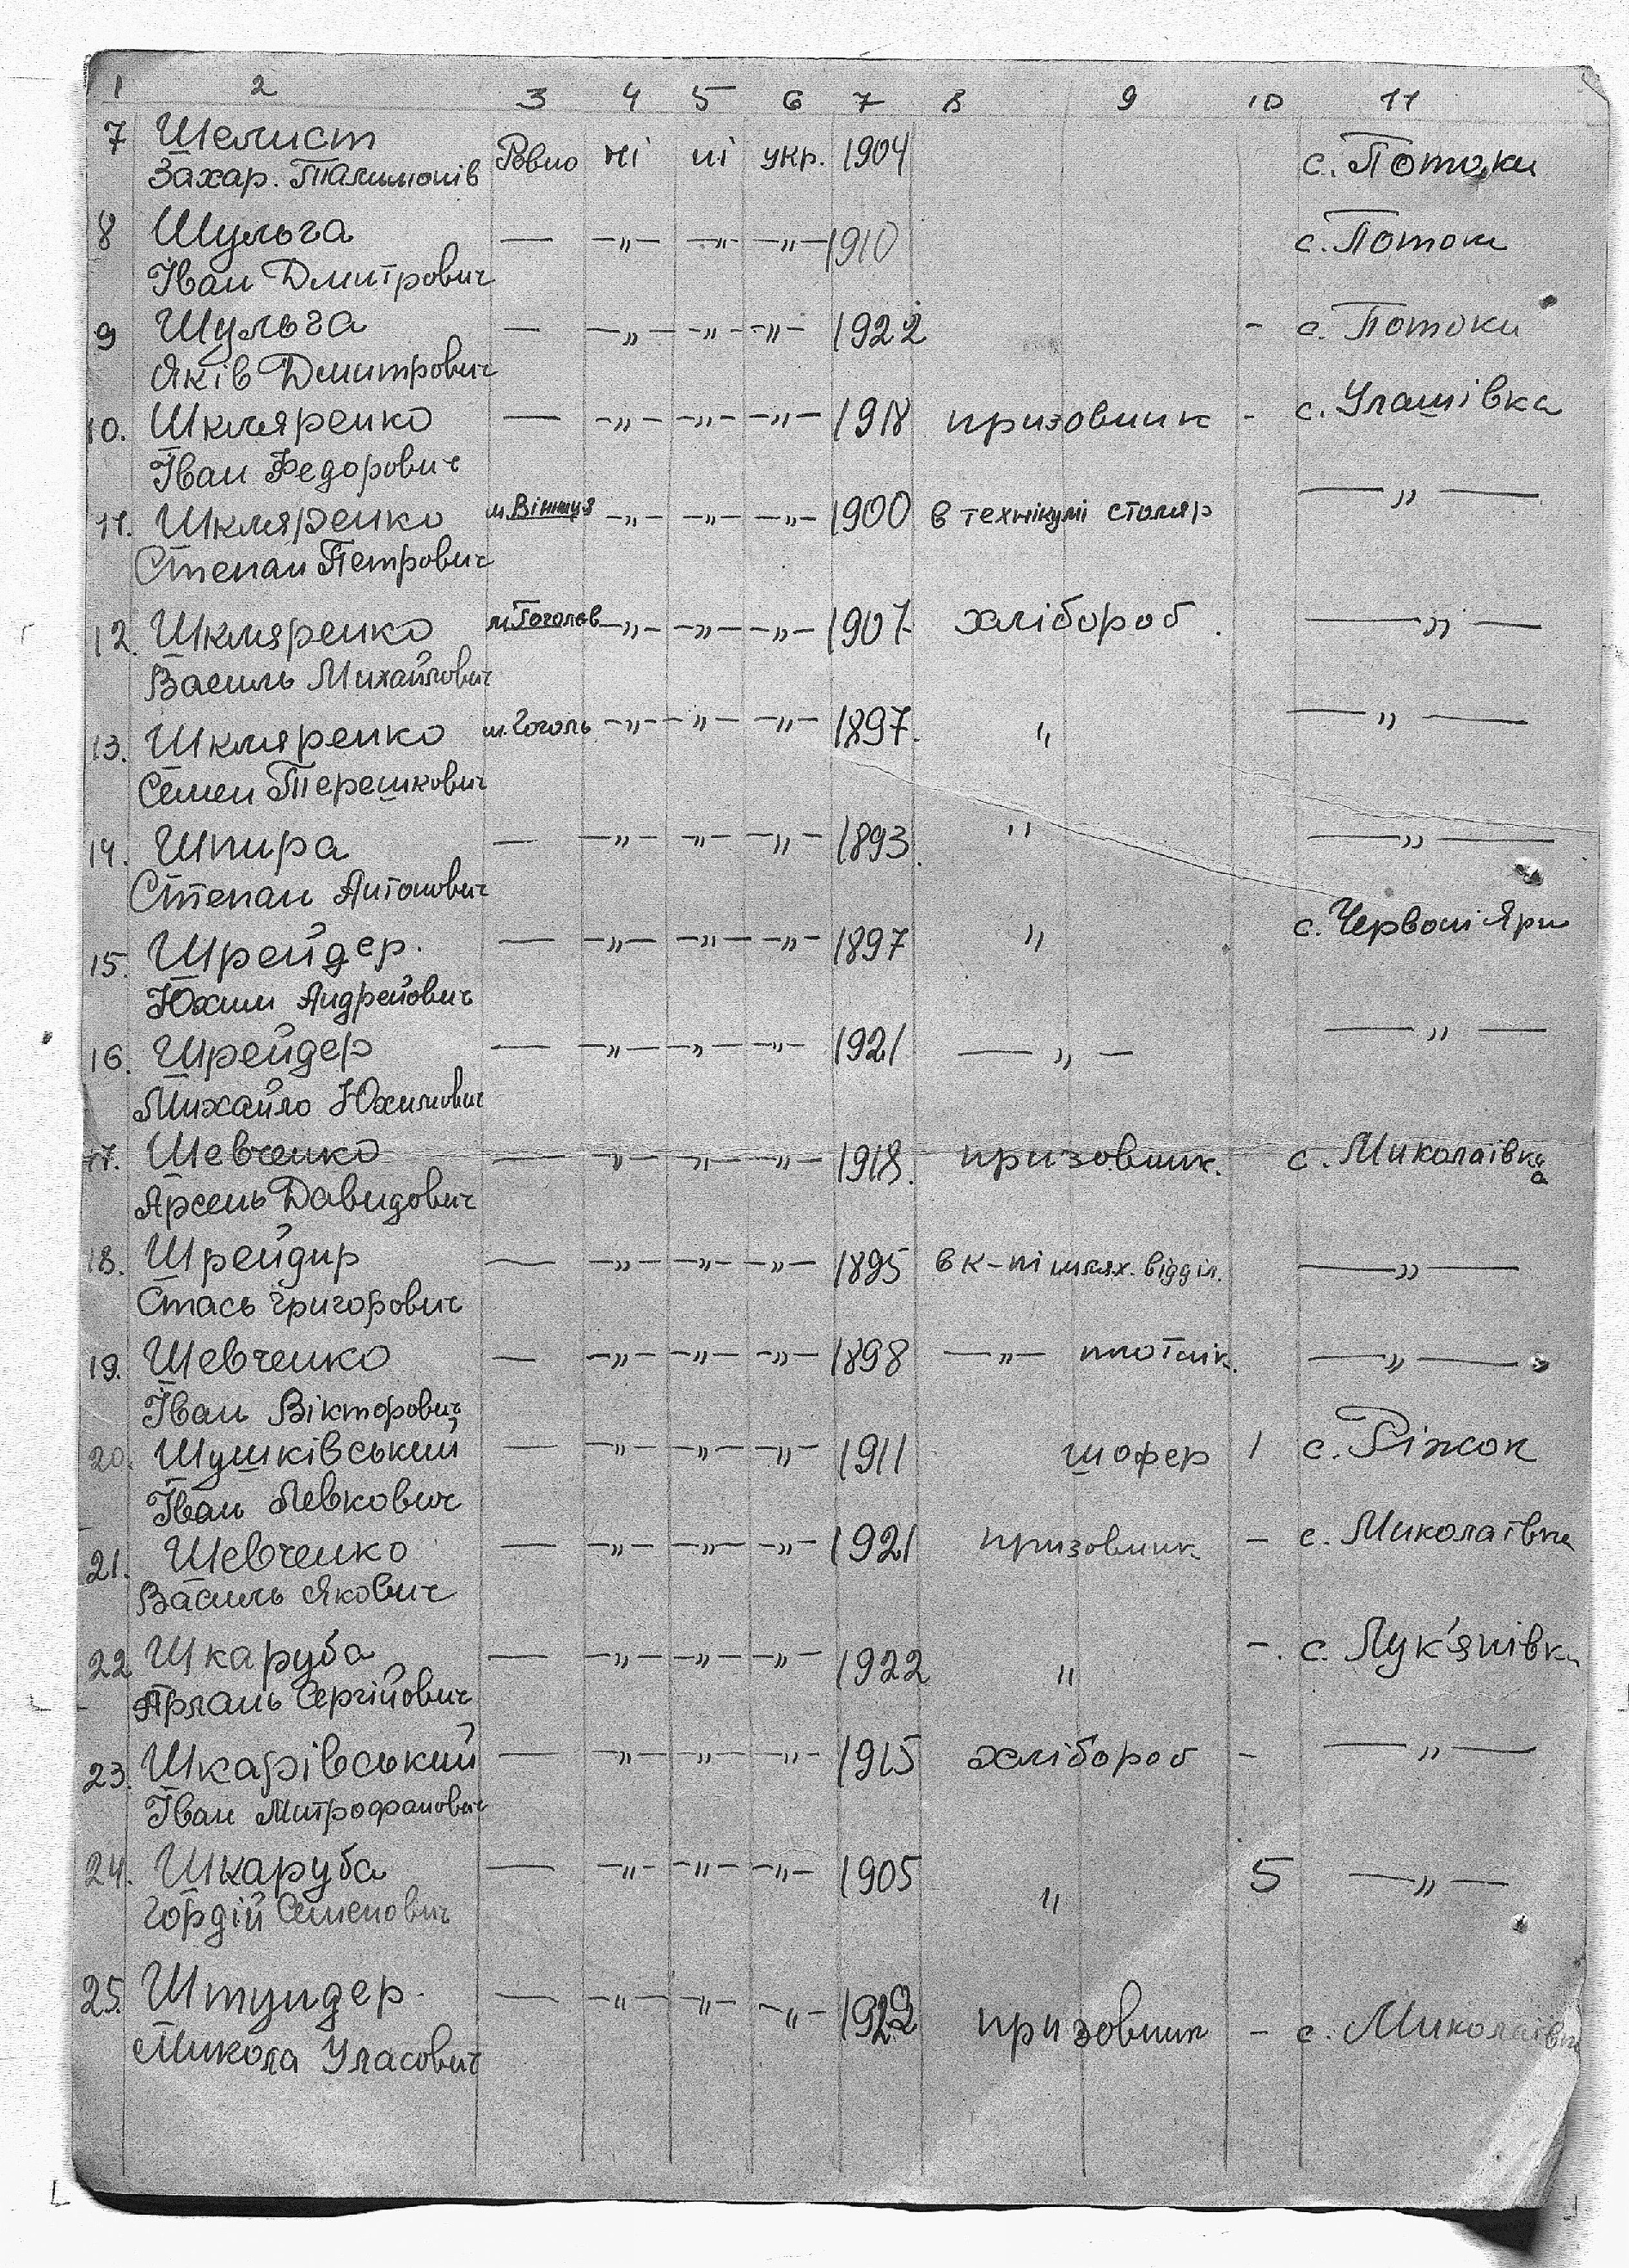 1 2 3 4 5 6 7 8 9 10 11
7 Шелист Ровно ні ні укр. 1904 с. Потоки
Захар. Талимонів
8 Шульга — —„— —„— —„— 1910 с. Потоки
Іван Дмитрович
9 Шульга — —„— —„— —„— 1922 - с. Потоки
Яків Дмитрович
10. Шкляренко — —„— —„— —„— 1918 призовник - с. Улашівка
Іван Федорович
11. Шкляренко м. Вінниця —„— —„— —„— 1900 в технікумі столяр —„—
Степан Петрович
12. Шкляренко м. Гоголев —„— —„— —„— 1907 хлібороб. —„—
Василь Михайлович
13. Шкляренко м. Гоголь —„— —„— —„— 1897. „ —„—
Семен Терешкович
14. Шпира — —„— —„— —„— 1893. „ —„—
Степан Антонович
15. Шрейдер. — —„— —„— —„— 1897 „ с. Червоні Яри
Юхим Андрейович
16. Шрейдер — —„— —„— —„— 1921 —„— —„—
Михайло Юхимович
17. Шевченко — —„— —„— —„— 1918. призовник. с. Миколаївка
Арсень Давидович
18. Шрейдир — —„— —„— —„— 1895 в к-ні шлях. відділ. —„—
Стась Григорович
19. Шевченко — —„— —„— —„— 1898 —„— плотнік. —„—
Іван Вікторович
20. Шушківський — —„— —„— —„— 1911 шофер 1 с. Ріжок
Іван Левкович
21. Шевченко — —„— —„— —„— 1921 призовник - с. Миколаївка
Василь Якович
22 Шкаруба — —„— —„— —„— 1922 „ -. с. Лук'янівка
Сергійович
23. Шкарівський — —„— —„— —„— 1915 хлібороб - —„—
Іван Митрофанович
24. Шкаруба — —„— —„— —„— 1905 „ 5 —„—
Гордій Семенович
25. Штундер. — —„— —„— —„— 1922 призовник - с. Миколаївка
Микола Уласович